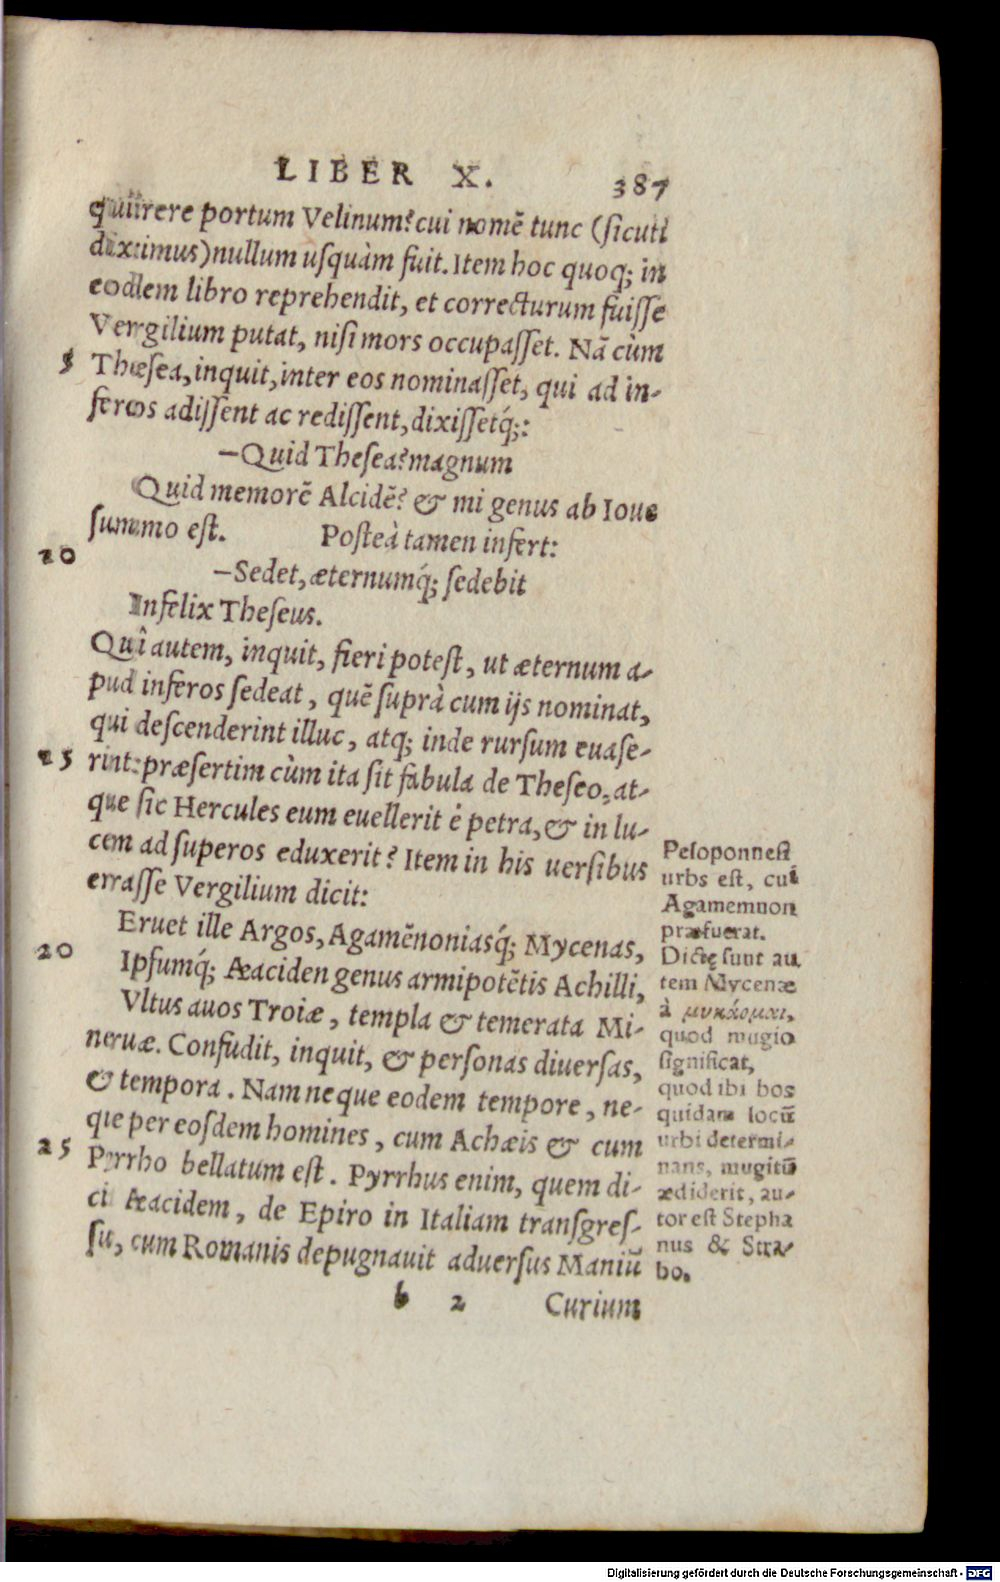 LIBER X. 387
quirere portum Velinum? cui nomẽ tunc (sicuti
diximus) nullum usquàm fuit. Item hoc quoq; in
eodem libro reprehendit, et correcturum fuiſſe
Vergilium putat, niſi mors occupaſſet. Nã cùm
5 Theſea, inquit, inter eos nominaſſet, qui ad in-
feros adiſſent ac rediſſent, dixiſſetq́;:
—Quid Theſea? magnum
Quid memorẽ Alcidẽ? & mi genus ab Ioue
ſummo eſt. Poſteà tamen infert:
20 —Sedet, æternumq́; ſedebit
Infelix Theſeus.
Quî autem, inquit, fieri poteſt, ut æternum a-
pud inferos ſedeat, quẽ ſuprà cum ijs nominat,
qui deſcenderint illuc, atq; inde rurſum euaſe-
25 rint: præſertim cùm ita ſit fabula de Theſeo, at-
que ſic Hercules eum euellerit è petra, & in lu-
cem ad ſuperos eduxerit? Item in his uerſibus
erraſſe Vergilium dicit:
Eruet ille Argos, Agamẽnoniasq́; Mycenas,
20 Ipſumq́; Æaciden genus armipotẽtis Achilli,
Vltus auos Troiæ, templa & temerata Mi-
neruæ. Confudit, inquit, & perſonas diuerſas,
& tempora. Nam neque eodem tempore, ne-
que per eoſdem homines, cum Achæis & cum
25 Pyrrho bellatum eſt. Pyrrhus enim, quem di-
cit Æacidem, de Epiro in Italiam tranſgreſ-
ſu, cum Romanis depugnauit aduerſus Maniũ
b 2 Curium
Peloponneſi
urbs eſt, cui
Agamemnon
præfuerat.
Dictę ſunt au
tem Mycenæ
à μυκάομαι,
quod mugio
ſignificat,
quod ibi bos
quidam locũ
urbi determi-
nans, mugitũ
ædiderit, au-
tor eſt Stepha
nus & Stra-
bo.
Digitalisierung gefördert durch die Deutsche Forschungsgemeinschaft - DFG